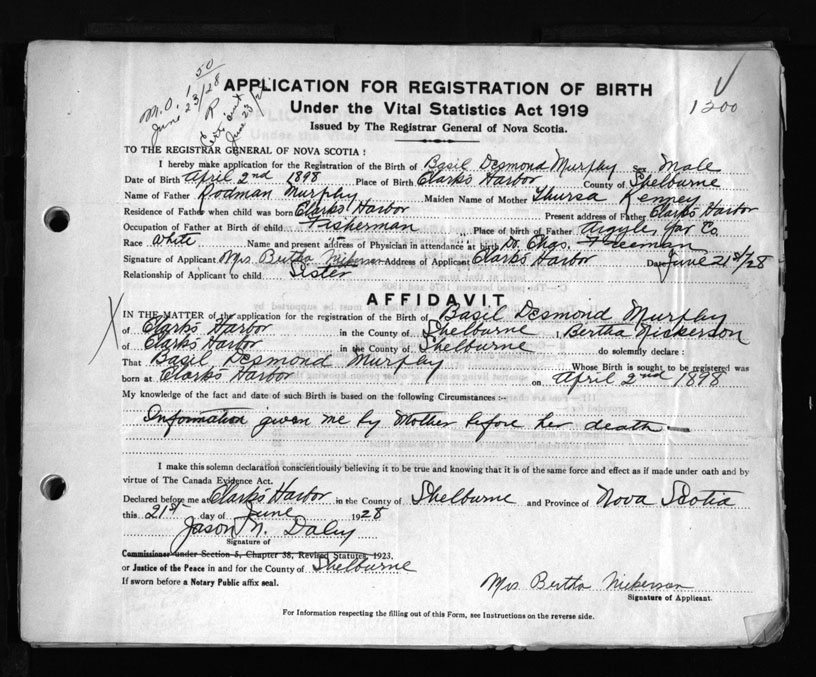 M.O. 1 50
June 23/28
June 23/
1200
APPLICATION FOR REGISTRATION OF BIRTH
Under the Vital Statistics Act 1919
Issued by The Registrar General of Nova Scotia.
TO THE REGISTRAR GENERAL OF NOVA SCOTIA :
I hereby make application for the Registration of the Birth of Basil Desmond Murphy Sex Male
Date of Birth April 2nd 1898 Place of Birth Clarks Harbor County of Shelburne
Name of Father Rodman Murphy Maiden Name of Mother Thursa Kenney
Residence of Father when child was born Clarks Harbor Present address of Father Clarks Harbor
Occupation of Father at Birth of child Fisherman Place of birth of Father Argyle, Yar Co.
Race White Name and present address of Physician in attendance at birth Dr. Chas. Freeman
Signature of Applicant Mrs. Bertha Nickerson Address of Applicant Clarks Harbor Date June 21st/28
Relationship of Applicant to child Sister
AFFIDAVIT
X
IN THE MATTER of the application for registration of the Birth of Basil Desmond Murphy
of Clarks Harbor in the County of Shelburne I, Bertha Nickerson
of Clarks Harbor in the County of Shelburne do solemnly declare :
That Basil Desmond Murphy Whose Birth is sought to be registered was
born at Clarks Harbor on April 2nd 1898
My knowledge of the fact and date of such Birth is based on the following Circumstances :-
Information given me by Mother before her death
I make this solemn declaration conscientiously believing it to be true and knowing that it is of the same force and effect as if made under oath and by
virtue of The Canada Evidence Act.
Declared before me at Clarks Harbor in the County of Shelburne and Province of Nova Scotia
this 21st day of June 1928
Jason N. Daley
Signature of
Commissioner under Section 5, Chapter 38, Revised Statutes 1923,
or Justice of the Peace in and for the County of Shelburne
If sworn before a Notary Public affix seal.
Mrs Bertha Nickerson
Signature of Applicant.
For Information respecting the filling out of this Form, see Instructions on the reverse side.